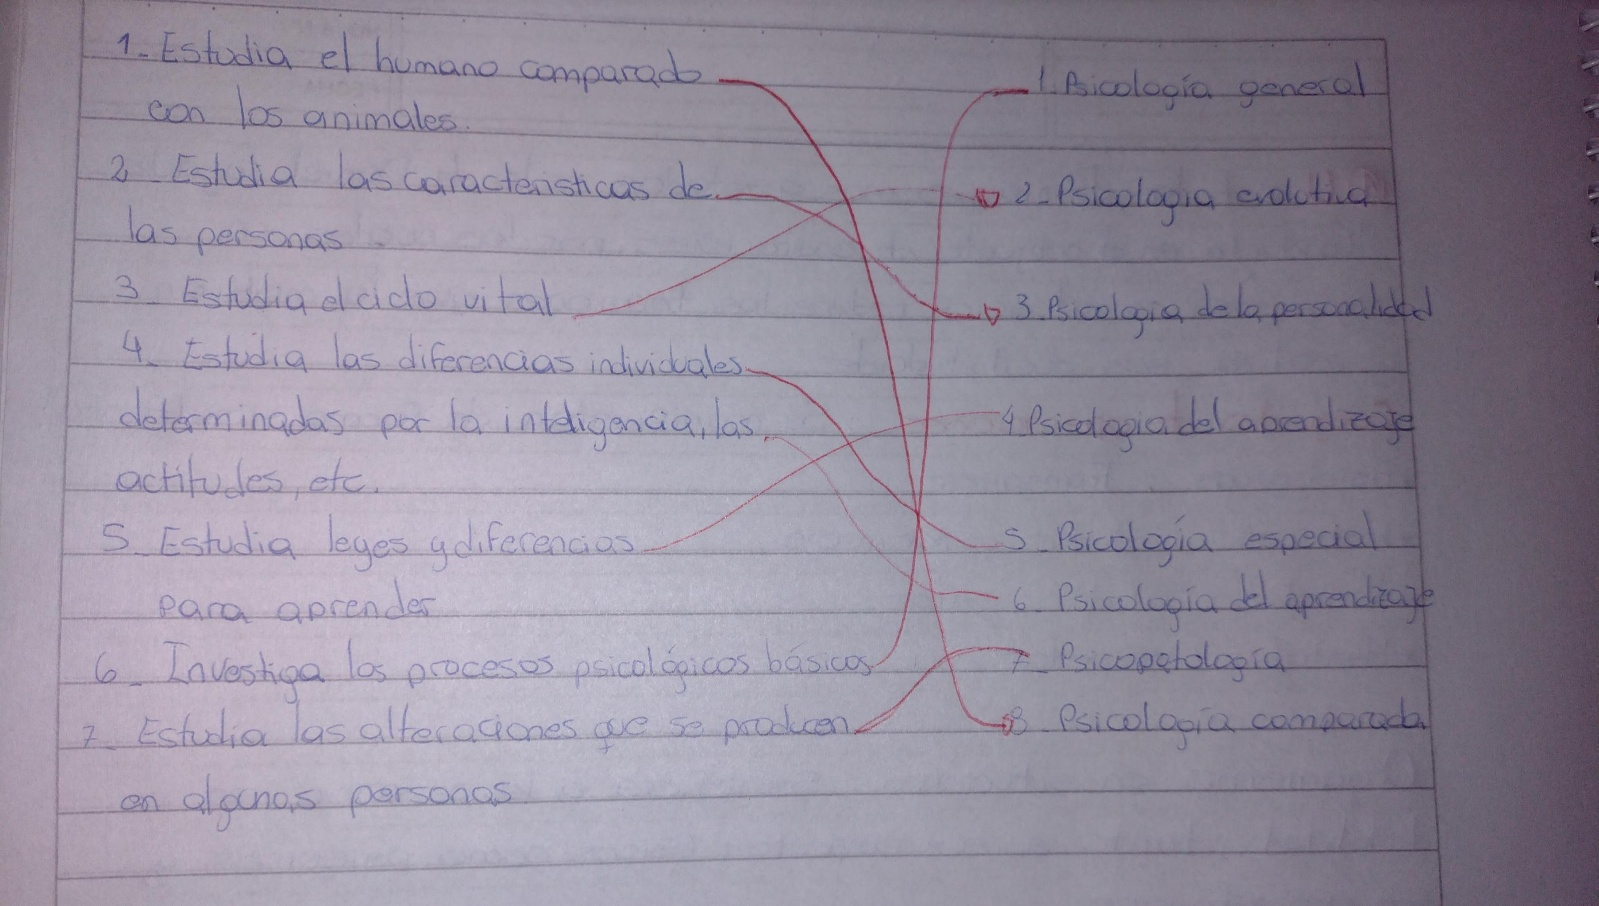 1- Estudia el humano comparado
con los animales.
2 Estudia las características de
las personas.
3 Estudia el ciclo vital
4- Estudia las diferencias individuales
determinadas por la inteligencia, las
actitudes, etc.
5- Estudia leyes y diferencias
para aprender
6- Investiga los procesos psicológicos básicos
7- Estudia las alteraciones que se producen
en algunas personas
1. Psicología general
2- Psicologia evolutiva
3. Psicologia de la personalidad
4 Psicologia del aprendizaje
5- Psicología especial
6- Psicología del aprendizaje
7- Psicopatología
8 Psicología comparada